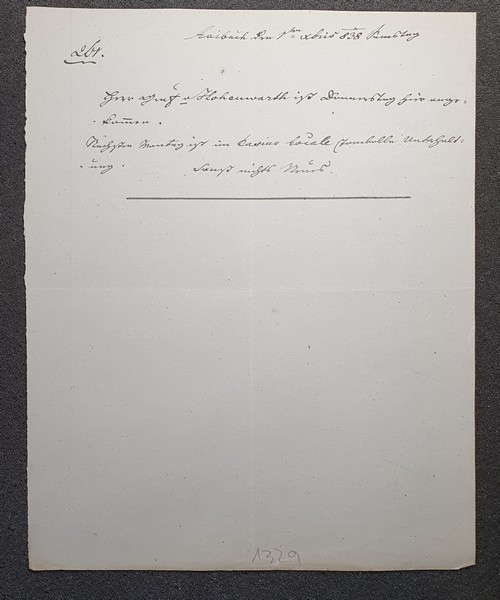 Laibach den 1ten Xbris 838 Samstag
261.
Herr Graf v Hohenwarth ist Donnerstag hier ange-
kommen.
Nächsten Montag ist im Casino Locale Tombolla Unterhalt-
ung. Sonst nichts Neues.
1329